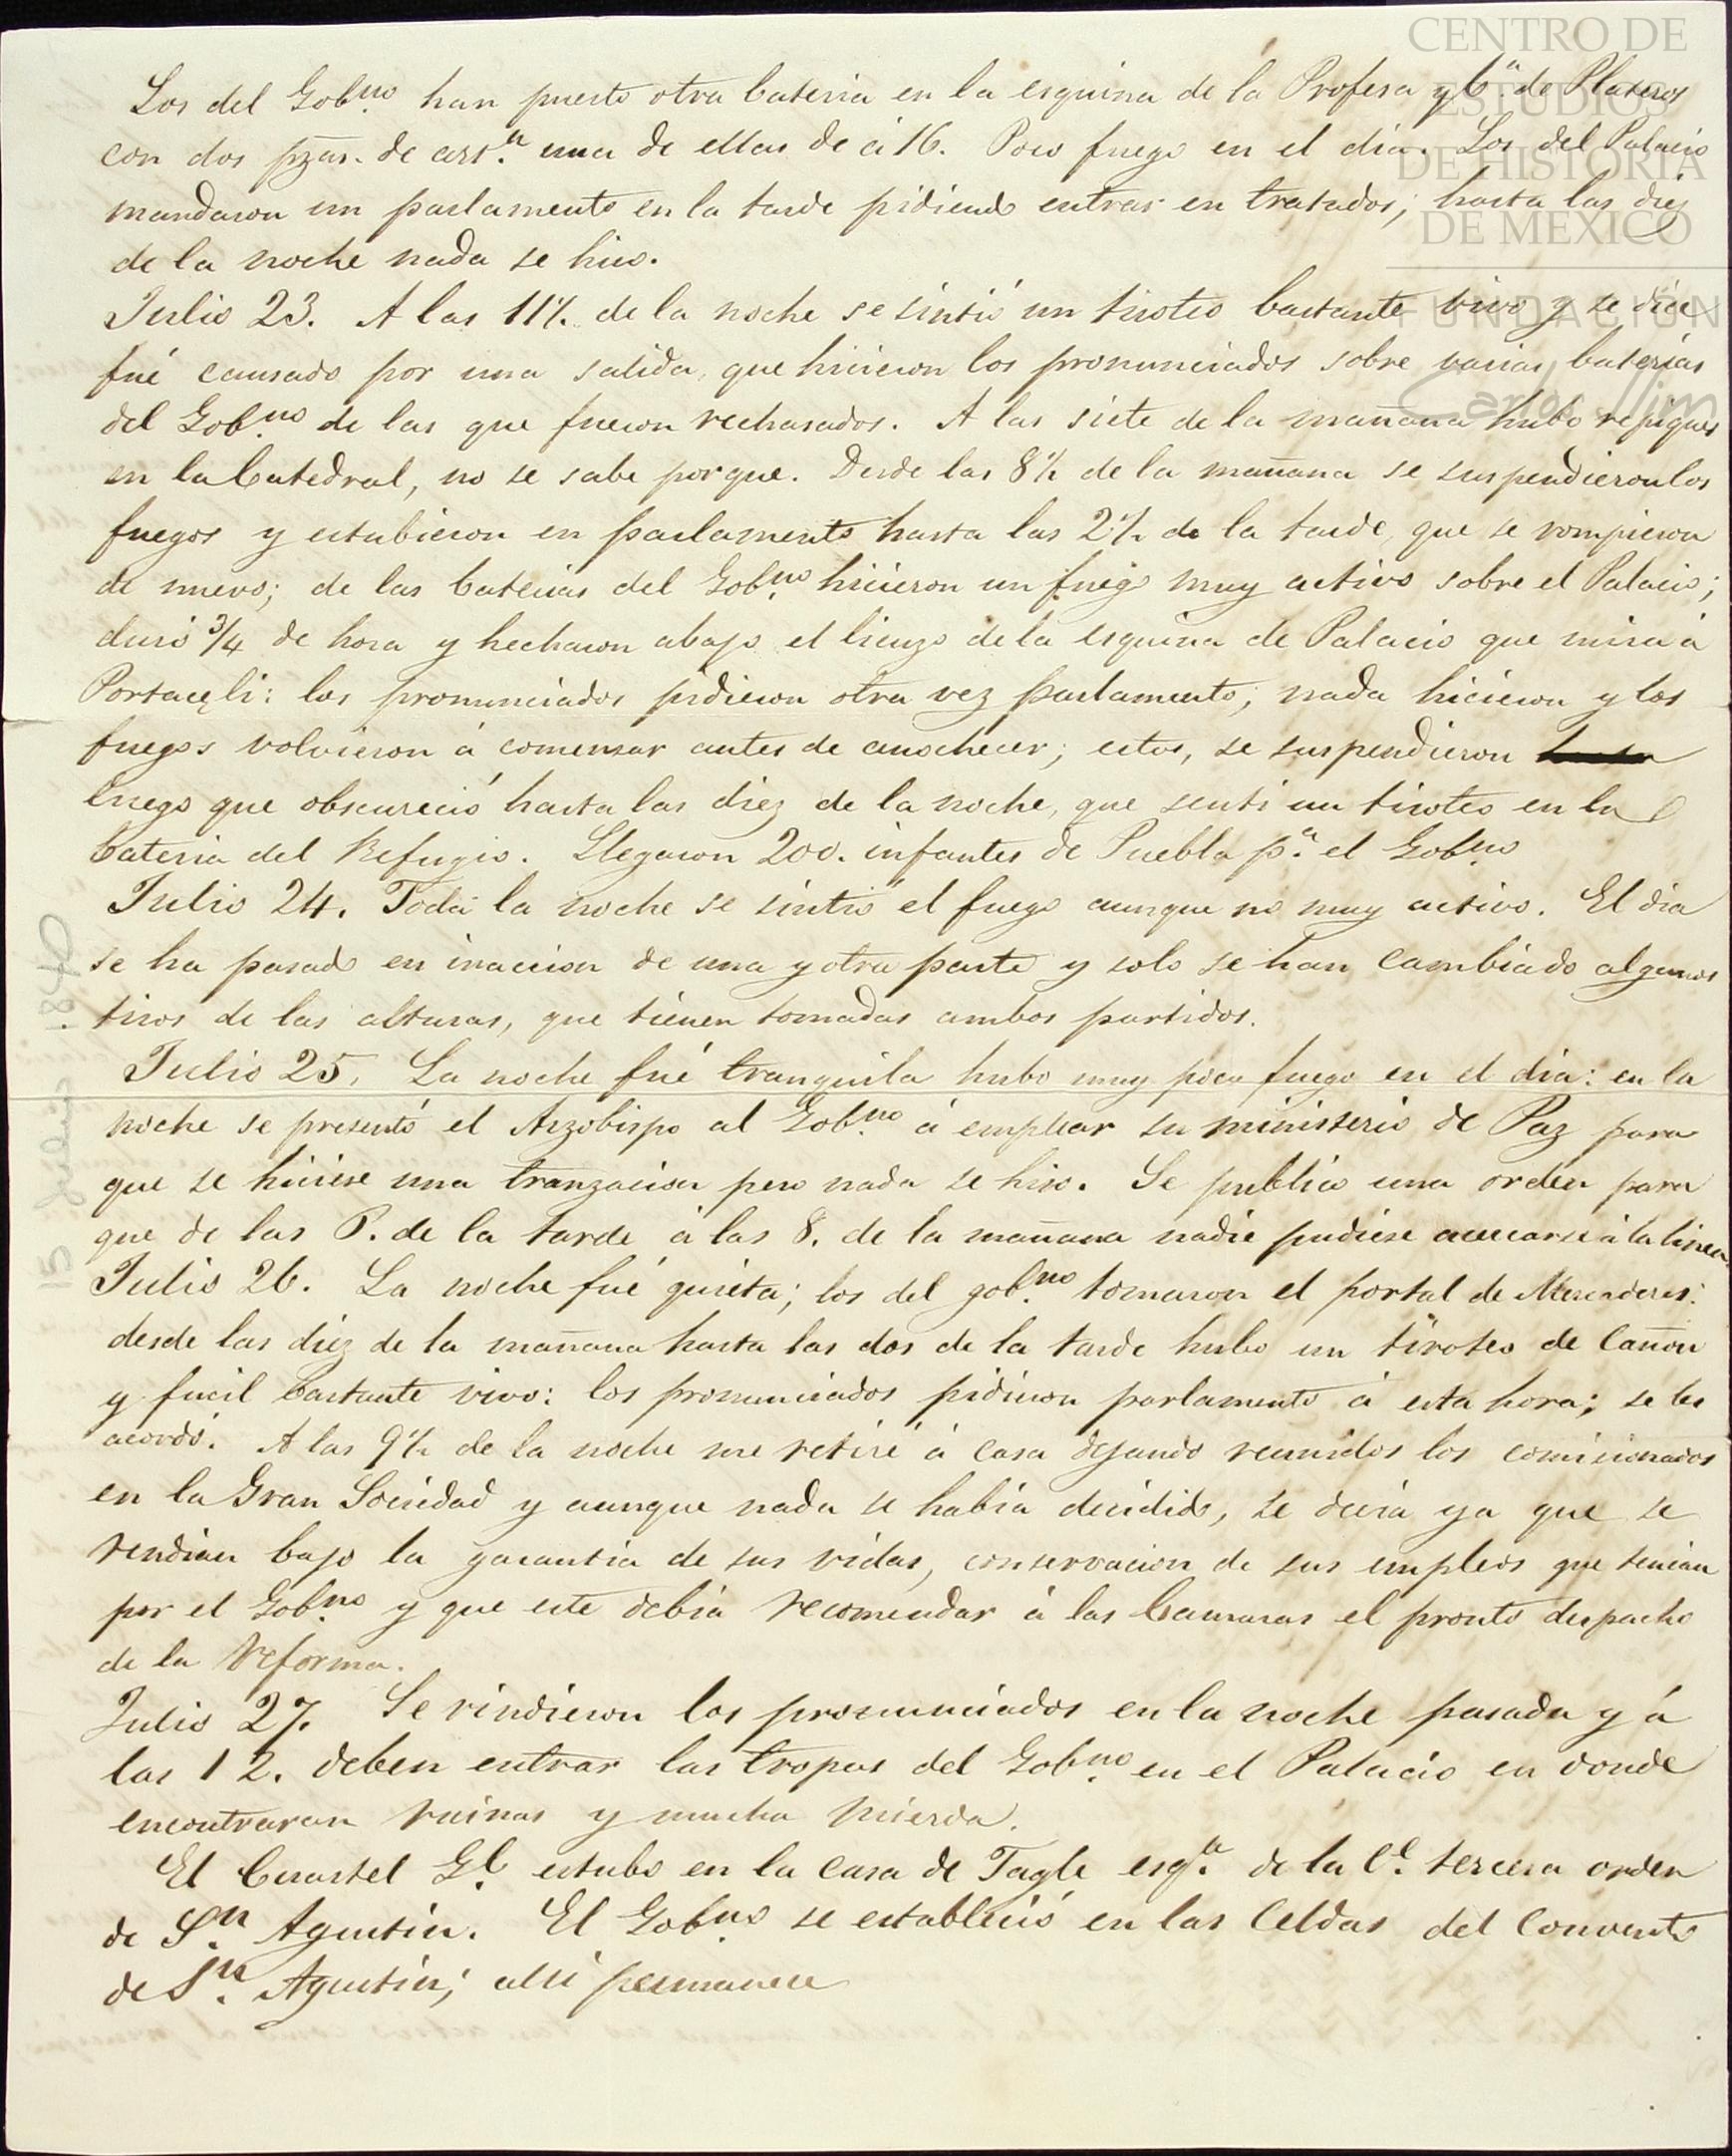 CENTRO DE
ESTUDIOS
DE HISTORIA
DE MEXICO
FUNDACIÓN
Carlos Slim
Los del Gobno. han puesto otra bateria en la esquina de la Profesa y Ca. de Plateros
con dos pzas. de arta. una de ellas de á 16. Poco fuego en el dia. Los del Palacio
mandaron un parlamento en la tarde pidiendo entrar en tratados; hasta las diez
de la noche nada se hiso.
Julio 23. A las 11½ de la noche se sintió un tiroteo bastante vivo y se dice
fué causado por una salida, que hicieron los pronunciados sobre varias baterias
del Gobno. de las que fueron rechasados. A las siete de la mañana hubo repiques
en la Catedral, no se sabe porque. Desde las 8½ de la mañana se suspendieron los
fuegos y estubieron en parlamento hasta las 2½ de la tarde, que se rompieron
de nuevo; de las baterias del Gobno. hicieron un fuego muy activo sobre el Palacio;
duró ¾ de hora y hecharon abajo el lienzo de la esquina de Palacio que mira á
Portaceli: los pronunciados pidieron otra vez parlamento; nada hicieron y los
fuegos volvieron á comensar antes de anochecer; estos, se suspendieron
luego que obscureció hasta las diez de la noche, que senti un tiroteo en la
bateria del Refugio. Llegaron 200. infantes de Puebla pa. el Gobno.
Julio 24. Toda la noche se sintió el fuego aunque no muy activo. El dia
se ha pasado en inaccion de una y otra parte y solo se han cambiado algunos
tiros de las alturas, que tienen tomadas ambos partidos.
Julio 25. La noche fué tranquila hubo muy poco fuego en el dia: en la
noche se presentó el Arzobispo al Gobno. á emplear su ministerio de Paz para
que se hiciese una tranzacion pero nada se hiso. Se publico una orden para
que de las 8. de la tarde á las 8. de la mañana nadie pudiese acercarse á la linea.
Julio 26. La noche fué quieta; los del gobno. tomaron el portal de Mercaderes:
desde las diez de la mañana hasta las dos de la tarde hubo un tiroteo de Cañon
y fucil bastante vivo: los pronunciados pidieron parlamento á esta hora; se les
acordó. A las 9½ de la noche me retiré á casa dejando reunidos los comicionados
en la Gran Sociedad y aunque nada se habia decidido, se decia ya que se
rendian bajo la garantia de sus vidas, conservacion de sus empleos que tenian
por el Gobno. y que este debia recomendar á las Camaras el pronto despacho
de la reforma.
Julio 27. Se rindieron los pronunciados en la noche pasada y á
las 12. deben entrar las tropas del Gobno. en el Palacio en donde
encontraran ruinas y mucha mierda.
El Cuartel Gl. estubo en la casa de Tagle esqa. de la Ce. tercera orden
de Sn. Agustin. El Gobno. se estableció en las Celdas del Convento
de Sn. Agustin; alli permanece